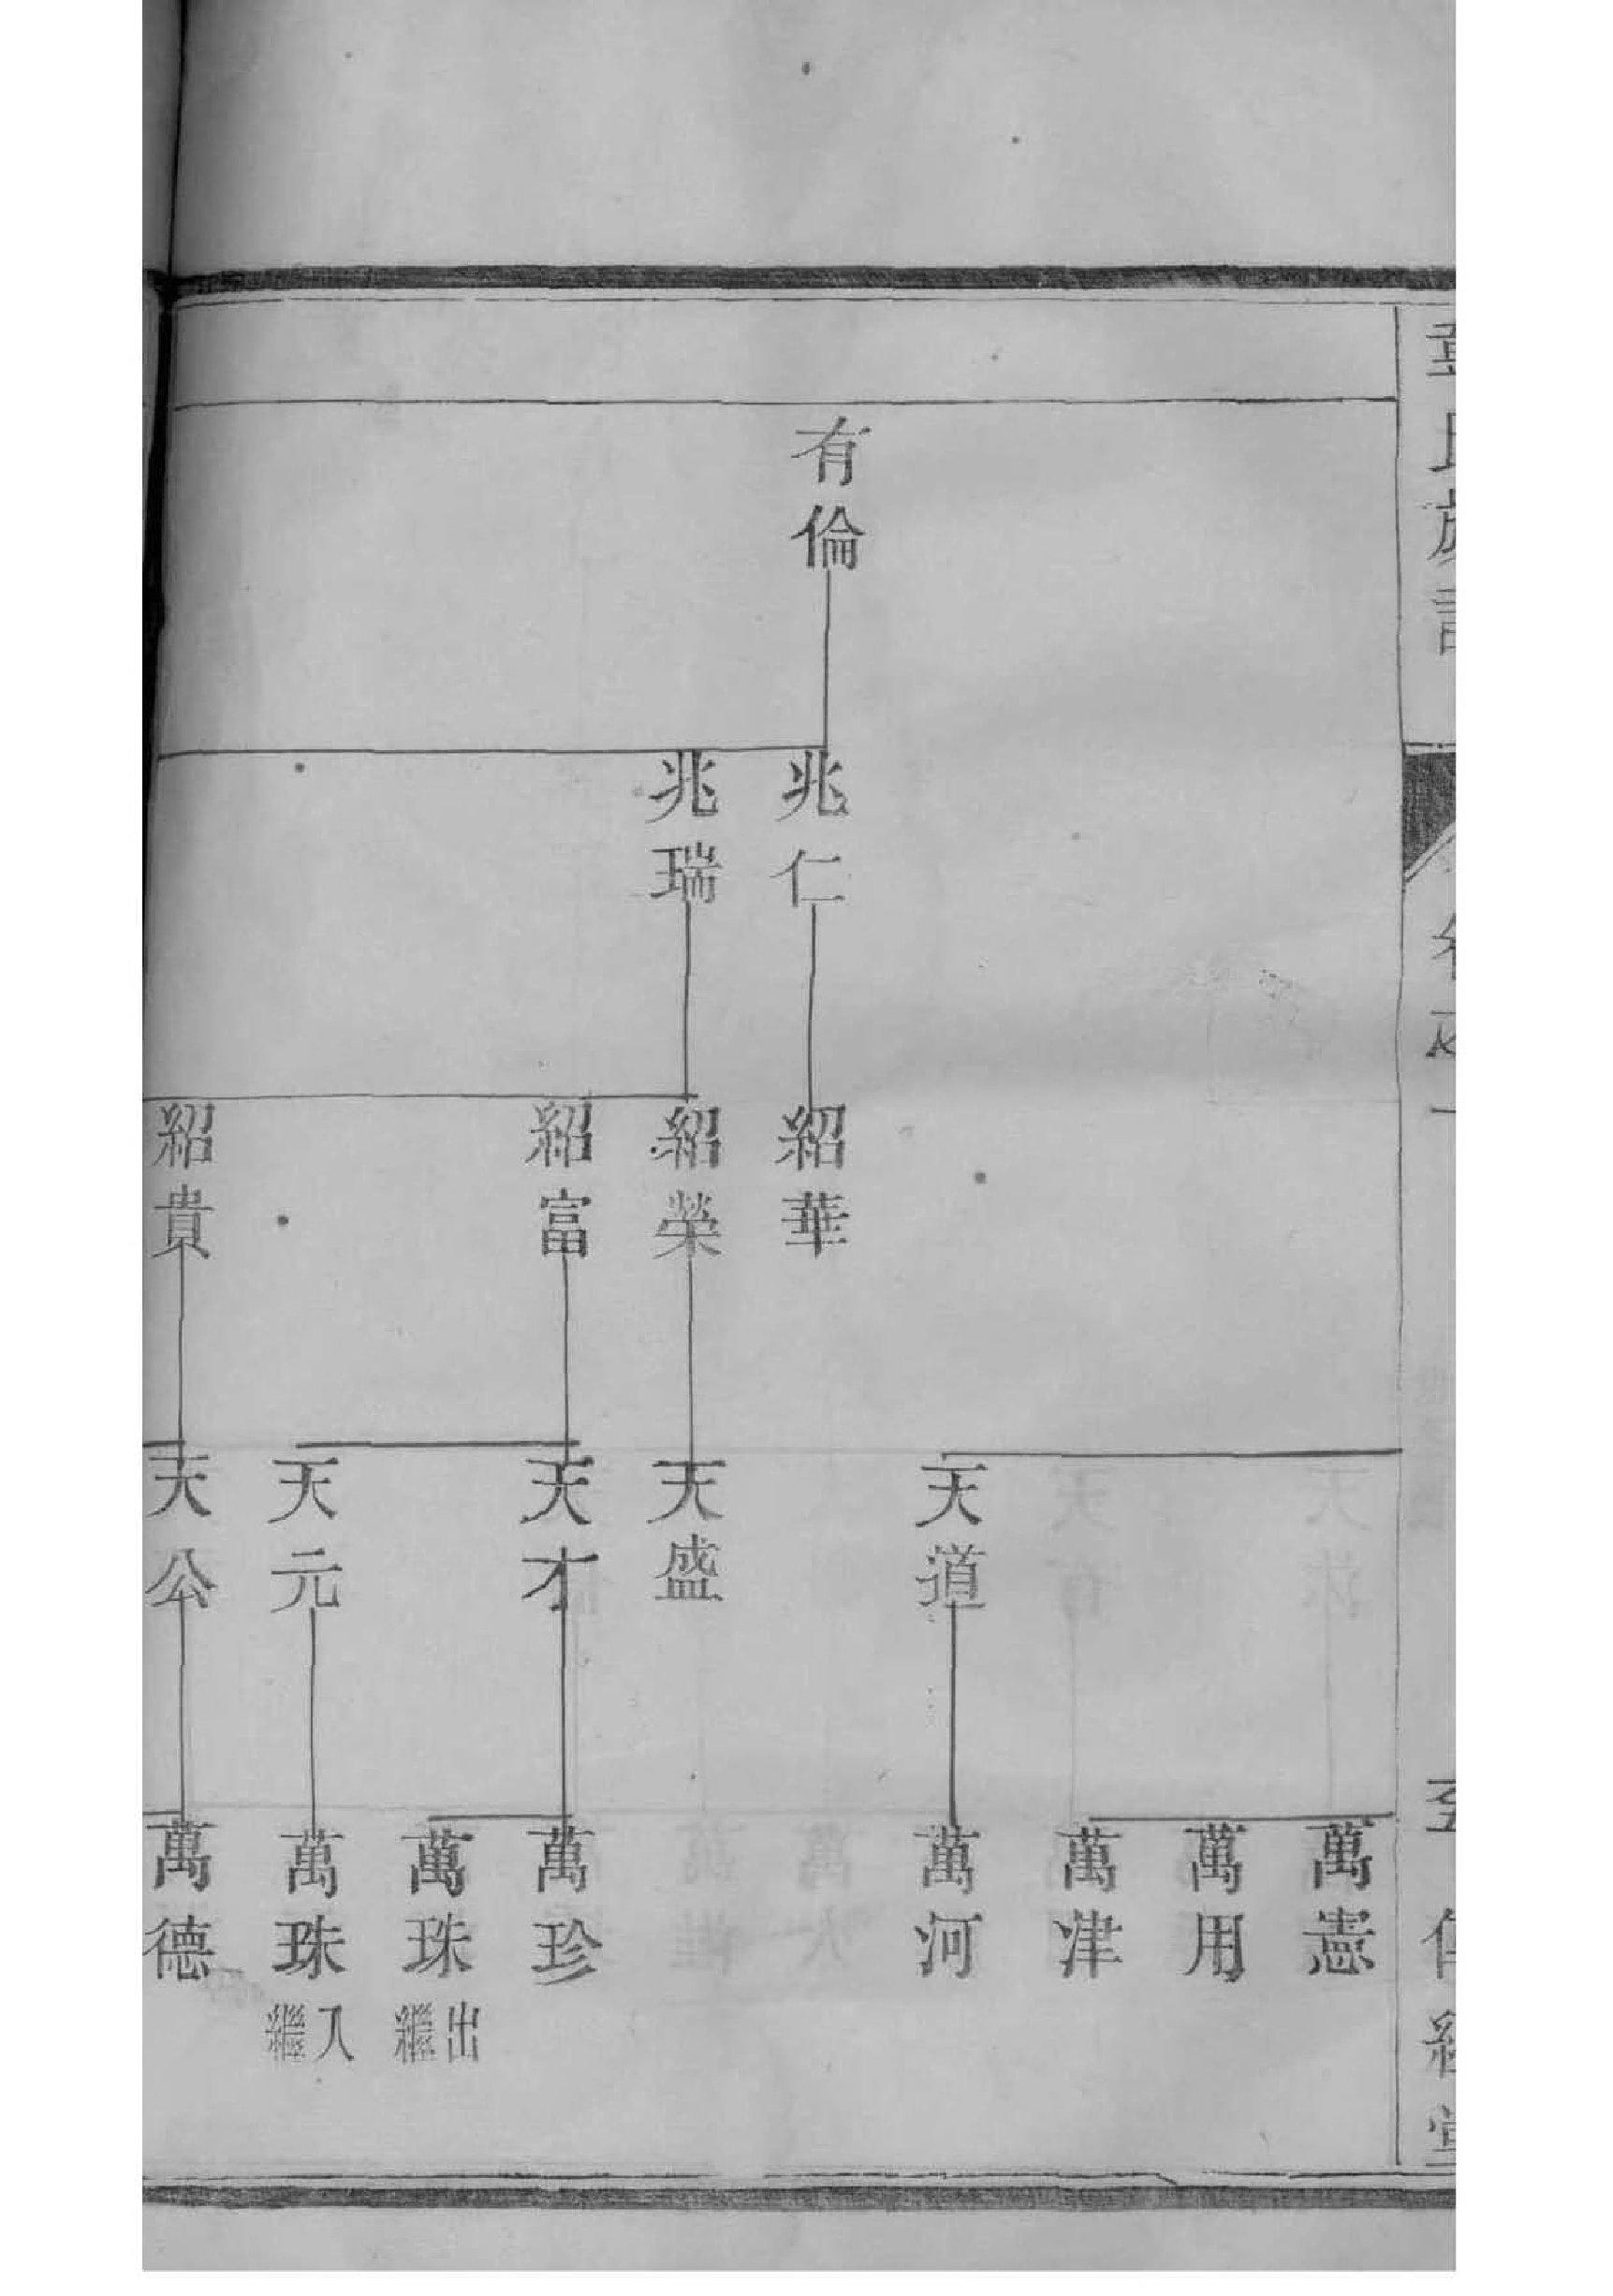 有倫
兆仁
兆瑞
紹華
紹榮
紹富
紹貴
天道
天盛
天才
天元
天公
萬憲
萬用
萬津
萬河
萬珍
萬珠
出繼
萬珠
入繼
萬德